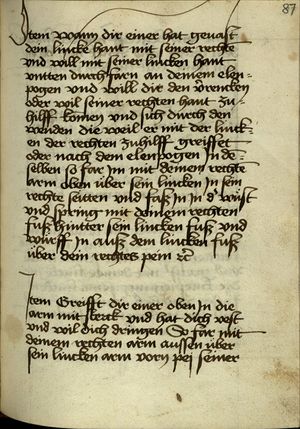 87
Item wann dir einer hat gevast
dein lincke hant mit seiner rechte
vnd will mit seiner lincken hant
vntten durch farn an deinem elen-
pogen vnd will dir den verencken
oder wil seiner rechten hant zu
hilff komen vnd sich durch den
wenden die weil er mit der linck-
en der rechten zuhilff greiffet
oder nach dem elenpogen In de-
selben so far im mit deinem rechte
arm oben über sein lincken In sein
rechte seitten vnd faß in In d wüst
vnd spring mit deinem rechten
fuß hintter sein lincken fuß vnd
würff in auß dem lincken fuß
über dein rechtes pein
Item Greifft dir einer oben In die
arm mit sterck vnd hat dich vest
vnd wil dich dringen So far mit
deinem rechten arm aussen über
sein lincken arm vorn pej seiner